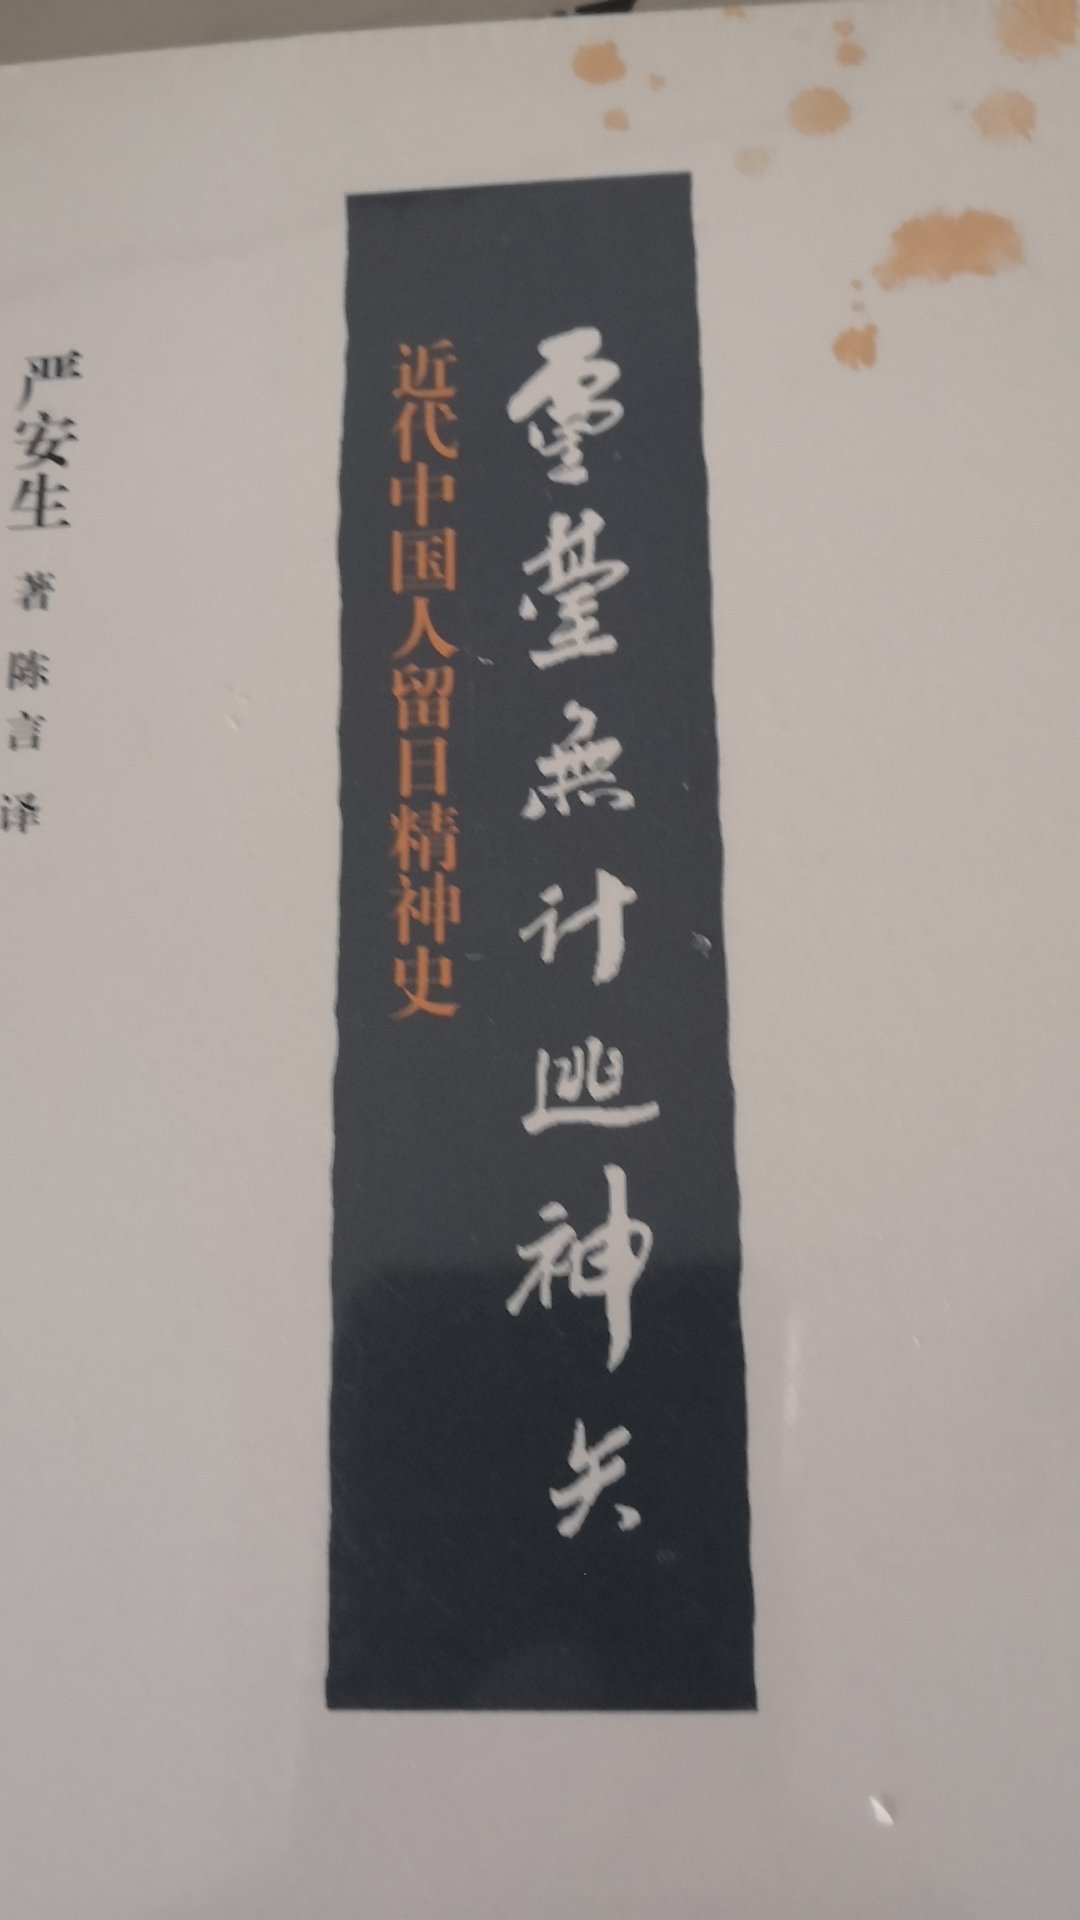 靈臺無計逃神矢
近代中国人留日精神史
严安生 著 陈言 译